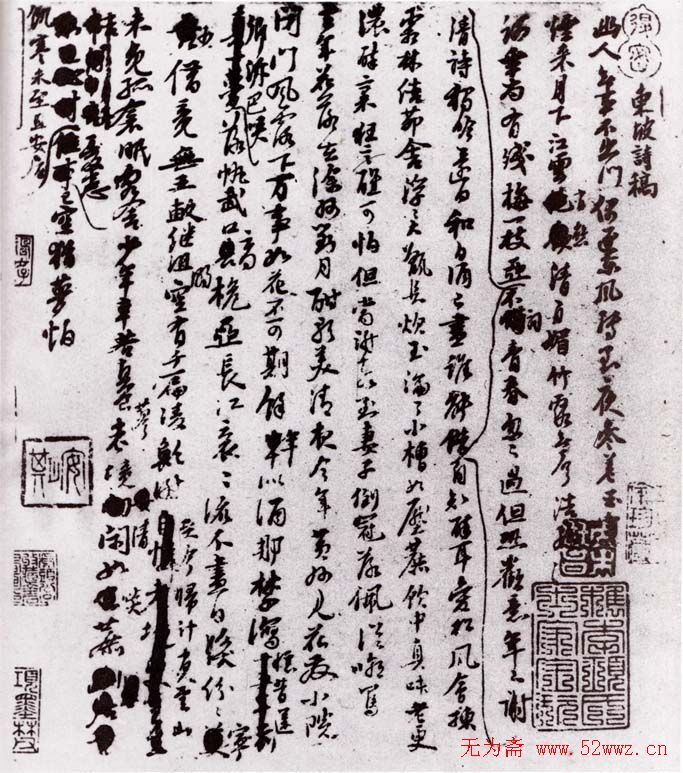 東坡詩稿
幽人無事不出門偶逐東風轉良夜參差玉
煙來月下江雲有態清自媚竹露無聲浩
尚有殘梅一枝亞不辭青春忽忽過但恐歡意年年謝
清詩獨吟還自和白酒已盡誰能借自知醉耳愛松風會揀
霜林結茅舍浮浮大甑長炊玉溜溜小槽如壓蔗飲中真味老更
濃醉裏狂言醒可怕但當謝客對妻子倒冠落佩從嘲罵
去年花落在徐州對月酣歌美清夜今年黃州見花發小院
閉門風露下萬事如花不可期餘年似酒那禁瀉憶昔還
鄉泝巴峽
落帆武口高桅亞長江袞袞流不盡白髮紛紛寧
少借竟無五畝繼沮溺空有千篇凌鮑謝至今歸計負雲山
未免孤衾眠客舍少年辛苦真食蓼老境清閑如啖蔗
憂患已空猶夢怕
飢寒未至且安居
項墨林
无为斋 www.52wwz.cn